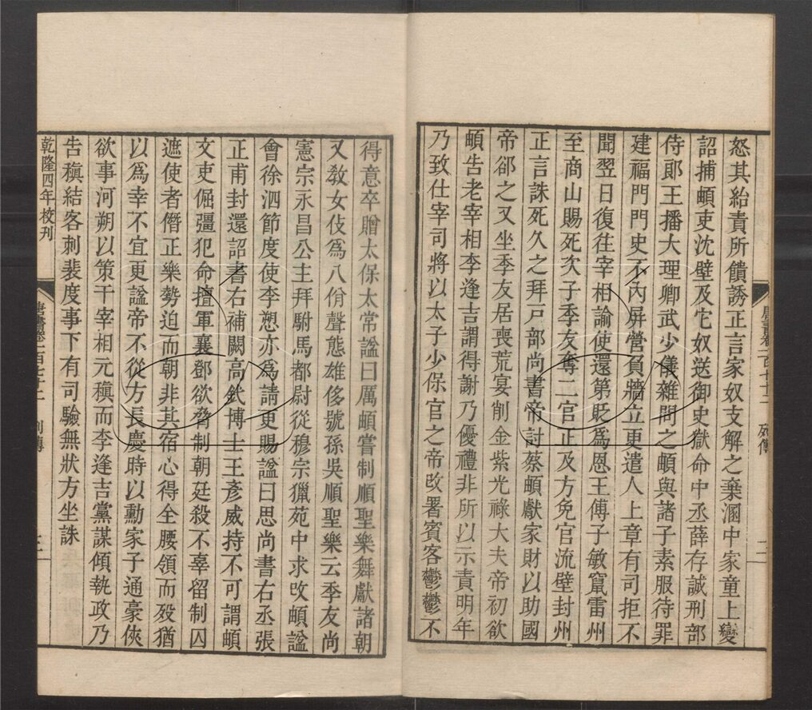 怒其紿責所饋誘正言家奴支解之棄溷中家童上變
詔捕頔吏沈璧及宅奴送御史獄命中丞薛存誠刑部
侍郎王播大理卿武少儀雜問之頔與諸子素服待罪
建福門門史不內屏營負牆立更遣人上章有司拒不
聞翌日復往宰相諭使還第貶爲恩王傅子敏竄雷州
至商山賜死次子季友奪二官正及方免官流璧封州
正言誅死久之拜戸部尚書帝討蔡頔獻家財以助國
帝卻之又坐季友居喪荒宴削金紫光祿大夫帝初欲
頔告老宰相李逢吉謂得謝乃優禮非所以示責明年
乃致仕宰司將以太子少保官之帝改署賓客鬱鬱不
唐書卷一百七十二 列傳 二
得意卒贈太保太常謚曰厲頔嘗制順聖樂舞獻諸朝
又敎女伎爲八佾聲態雄侈號孫吳順聖樂云季友尚
憲宗永昌公主拜駙馬都尉從穆宗獵苑中求改頔謚
會徐泗節度使李愬亦爲請更賜謚曰思尚書右丞張
正甫封還詔書右補闕高釴博士王彥威持不可謂頔
文吏倔彊犯命擅軍襄鄧欲脅制朝廷殺不辜留制囚
遮使者僭正樂勢迫而朝非其宿心得全腰領而歿猶
以爲幸不宜更謚帝不從方長慶時以勳家子通豪俠
欲事河朔以策干宰相元稹而李逢吉黨謀傾執政乃
告稹結客刺裴度事下有司驗無狀方坐誅
乾隆四年校刊
唐書卷一百七十二 列傳